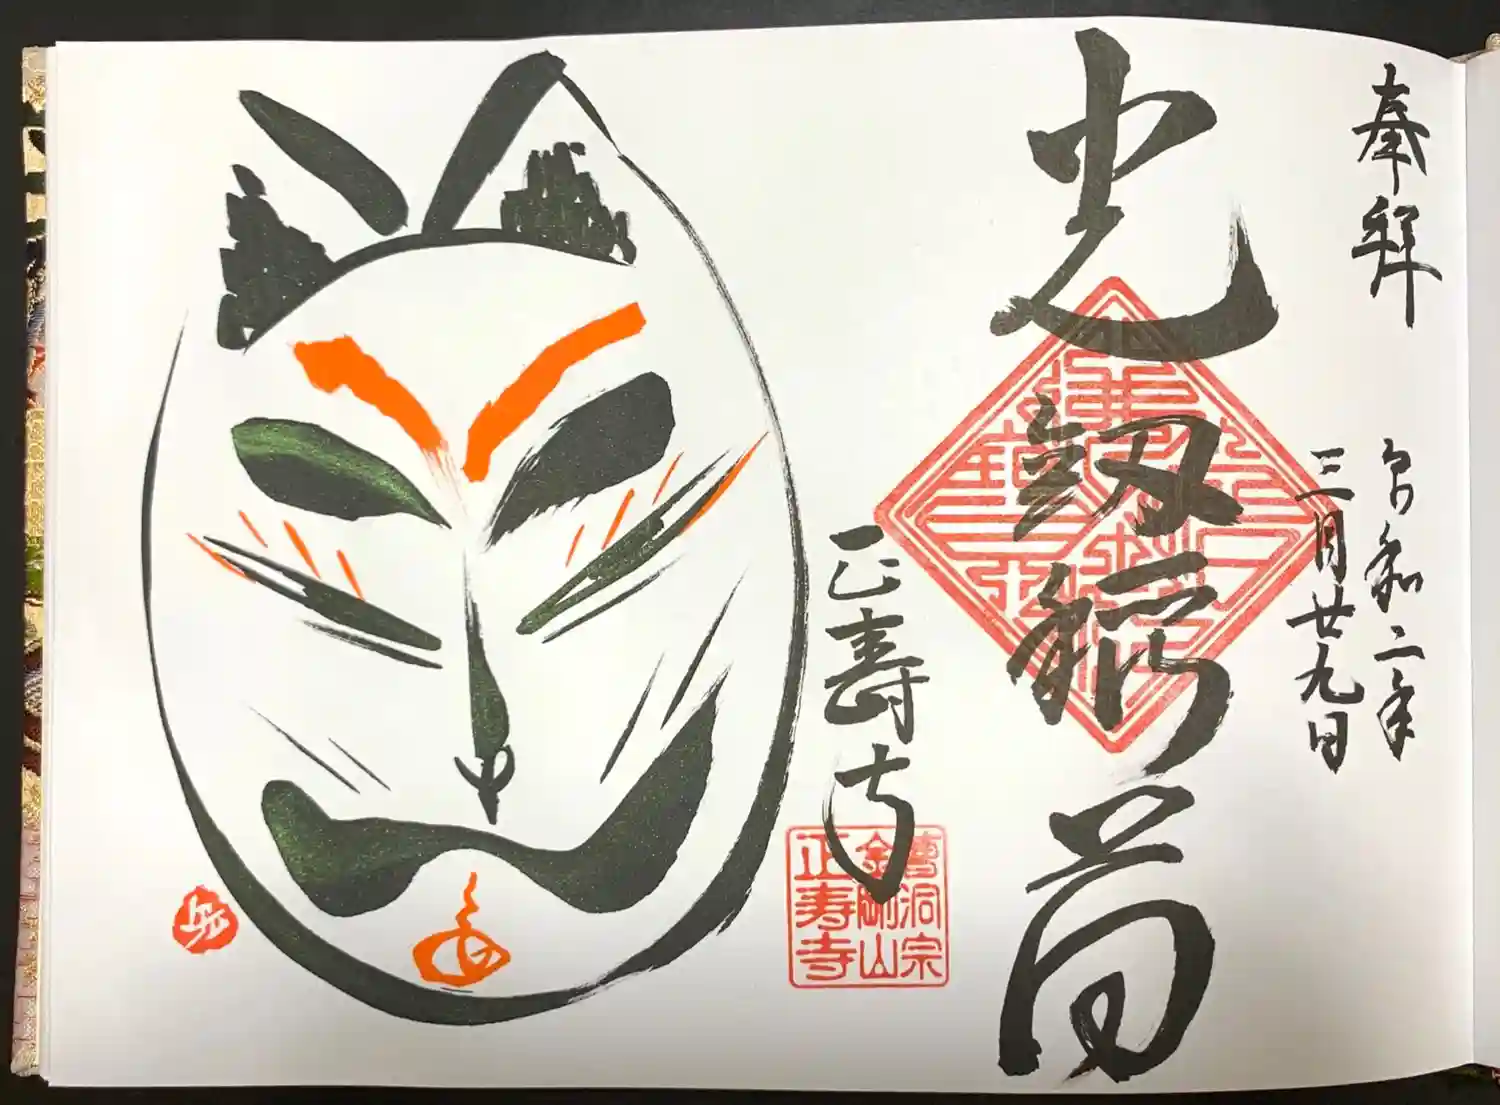 奉拝
令和二年
三月廿九日
光剱稲荷
正寿寺
曹洞宗
金剛山
正寿寺